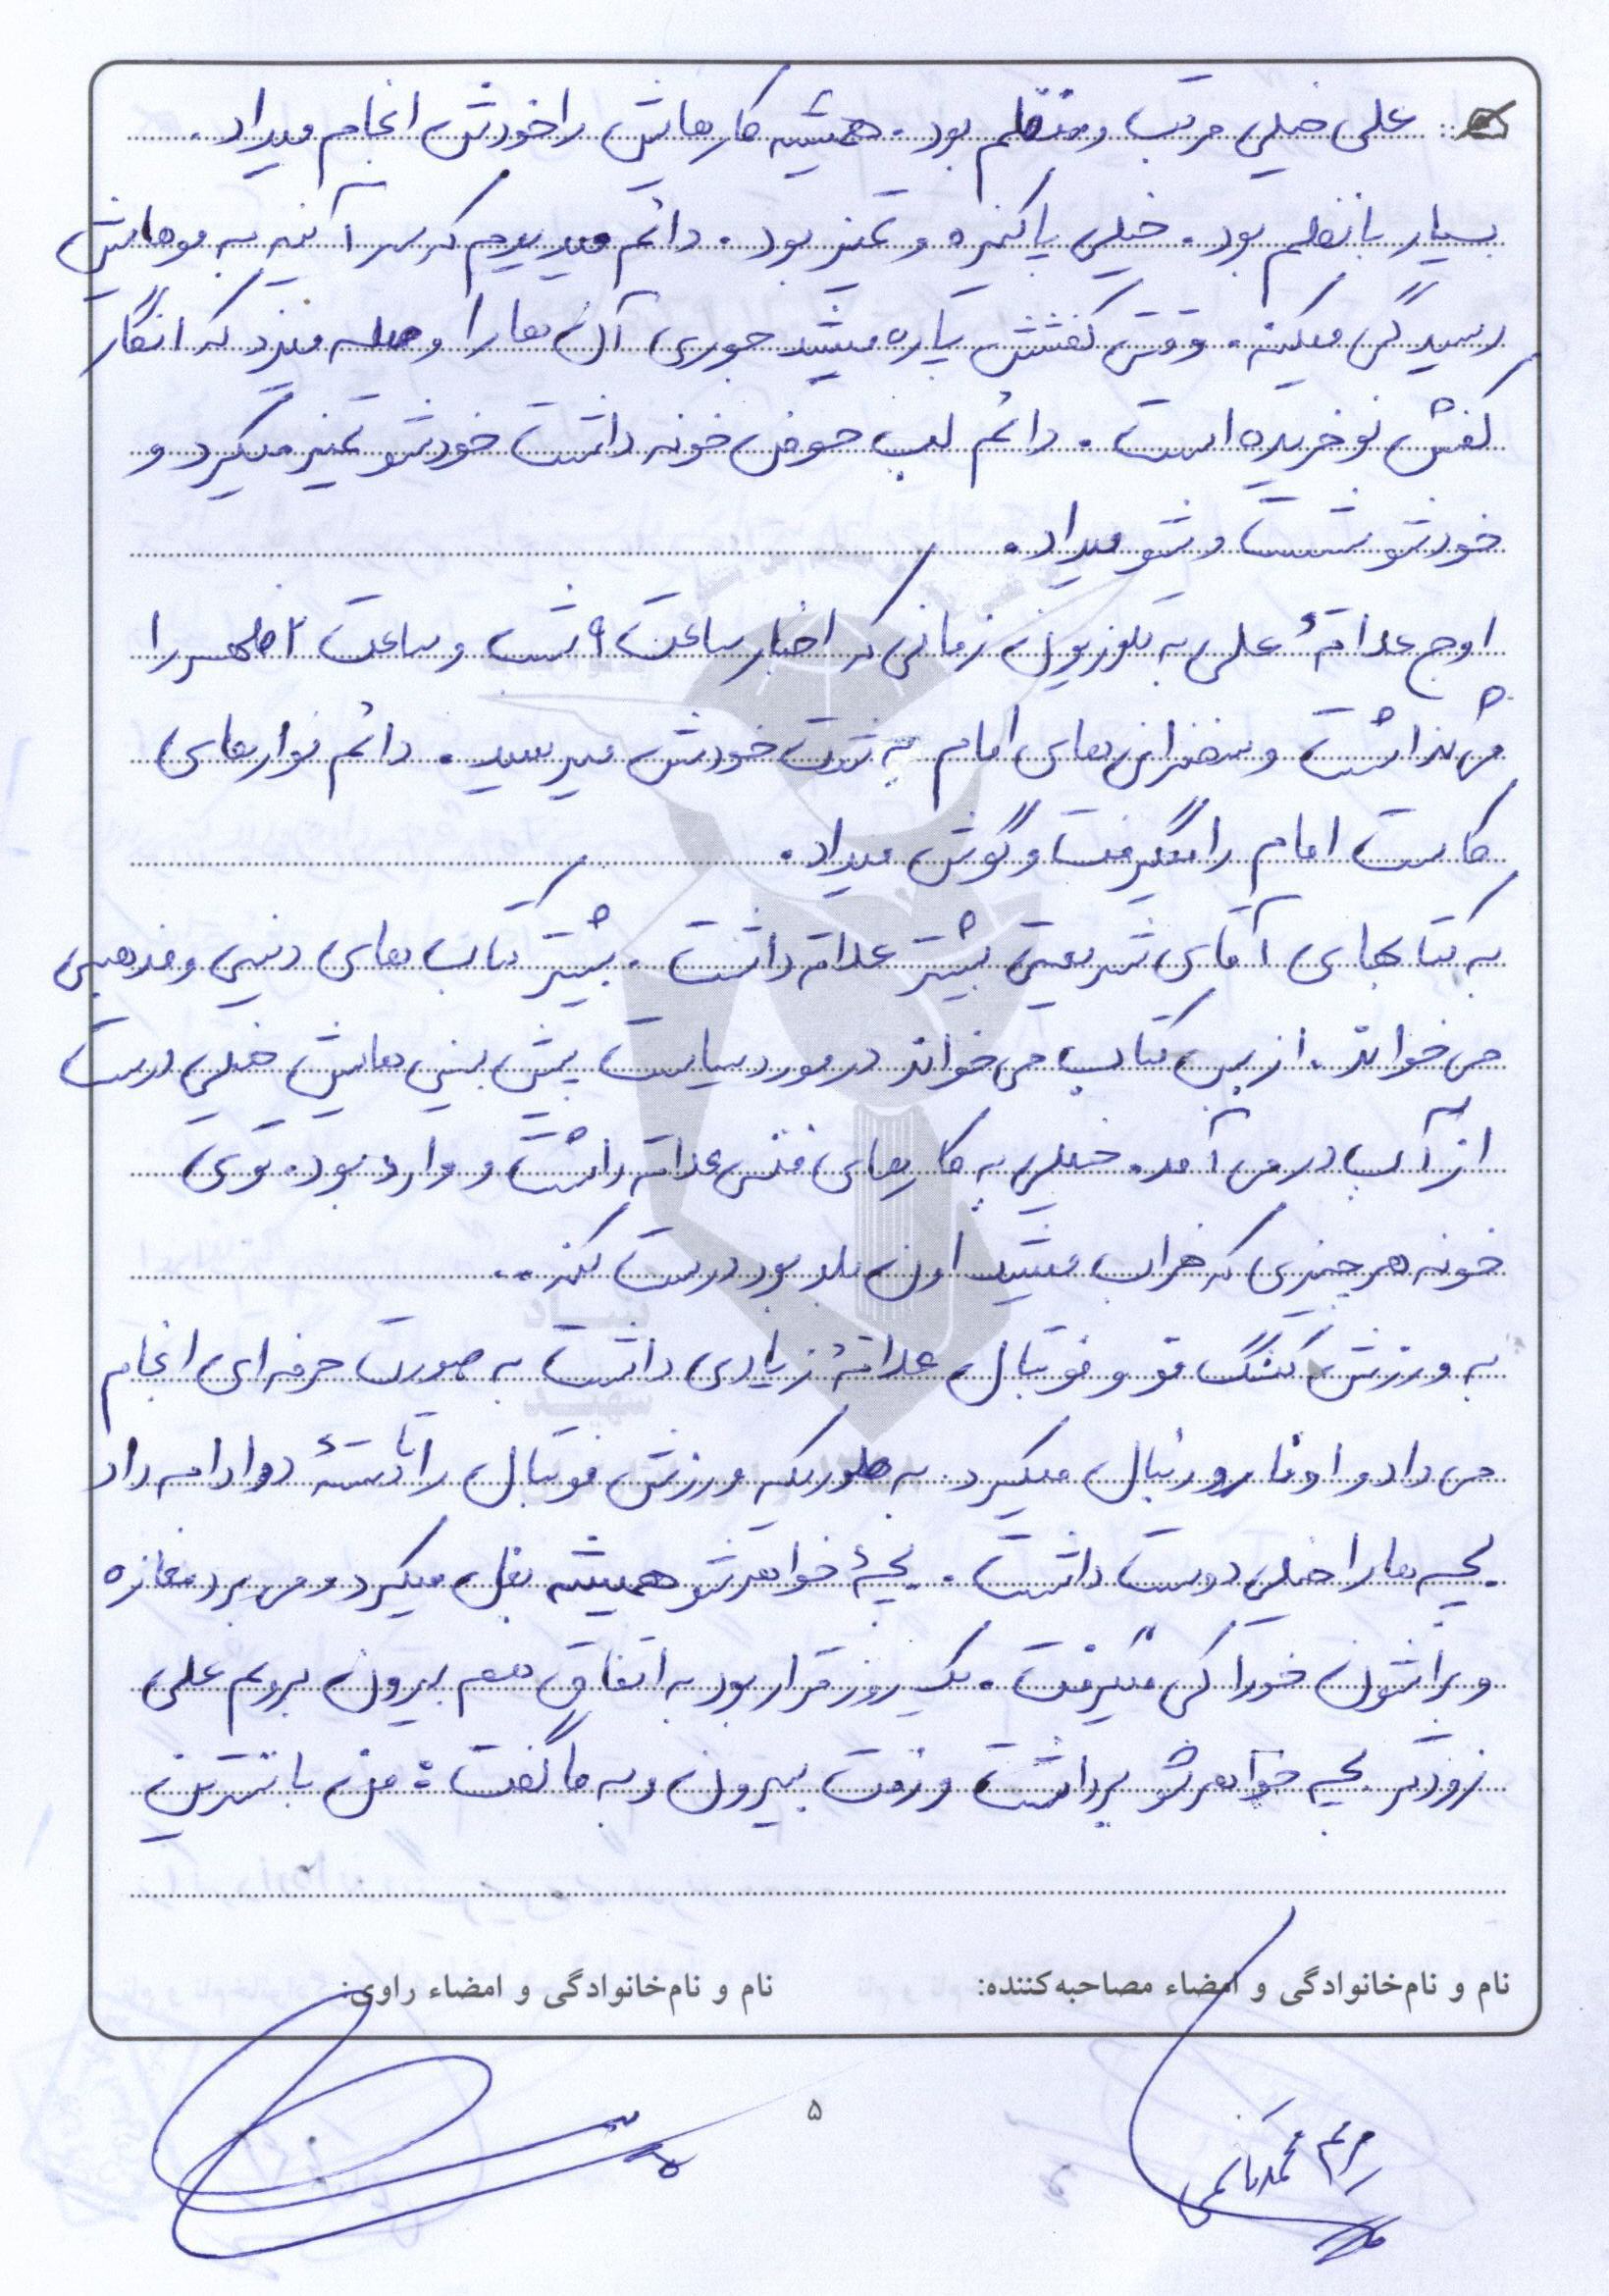 علی خیلی مرتب و منظم بود. همیشه کارهایش را خودش انجام میداد.
بسیار بانظم بود. خیلی پاکیزه و تمیز بود. دائم میدیدم که سر آئینه به موهایش
رسیدگی میکنه. وقتی کفشش پاره میشد جوری آن ها را وصله میزد که انگار
کفش نو خریده است. دائم لب حوض خونه داشت خودشو تمیز میکرد و
خودشو شست و شو میداد.
اوج علاقهٔ علی به تلوزیون زمانی که اخبار ساعت ۹ شب و ساعت ۲ ظهر را
می گذاشت و سخنرانی های امام به خودش میرسید. دائم نوارهای
کاست امام را میگیرفت و گوش میداد.
به کتابهای آقای شریعتی بیشتر علاقه داشت. بیشتر کتاب های دینی و مذهبی
می خواند. از بس کتاب می خواند در مورد سیاست پیش بینی هایش خیلی درست
از آب در می آمد. خیلی به کارهای فنی علاقه داشت و وارد بود. توی
خونه هر چیزی که خراب میشد اون بلد بود درست کنه.
به ورزش کنگ فو و فوتبال علاقهٔ زیادی داشت به صورت حرفه ای انجام
می داد و اونا رو دنبال میکرد. به طوریکه ورزش فوتبال را تا دستهٔ دو ادامه داد
بچه ها را خیلی دوست داشت. بچهٔ خواهرشو همیشه بغل میکرد و می برد مغازه
و براشون خوراکی میگیرفت. یک روز قرار بود به اتفاق هم بیرون بریم علی
زودتر بچه خواهرشو برداشت و رفت بیرون و به ما گفت: من با نسترین
نام و نام‌خانوادگی و امضاء مصاحبه‌کننده:
نام و نام‌خانوادگی و امضاء راوی:
۵
مریم محمدقاسمی